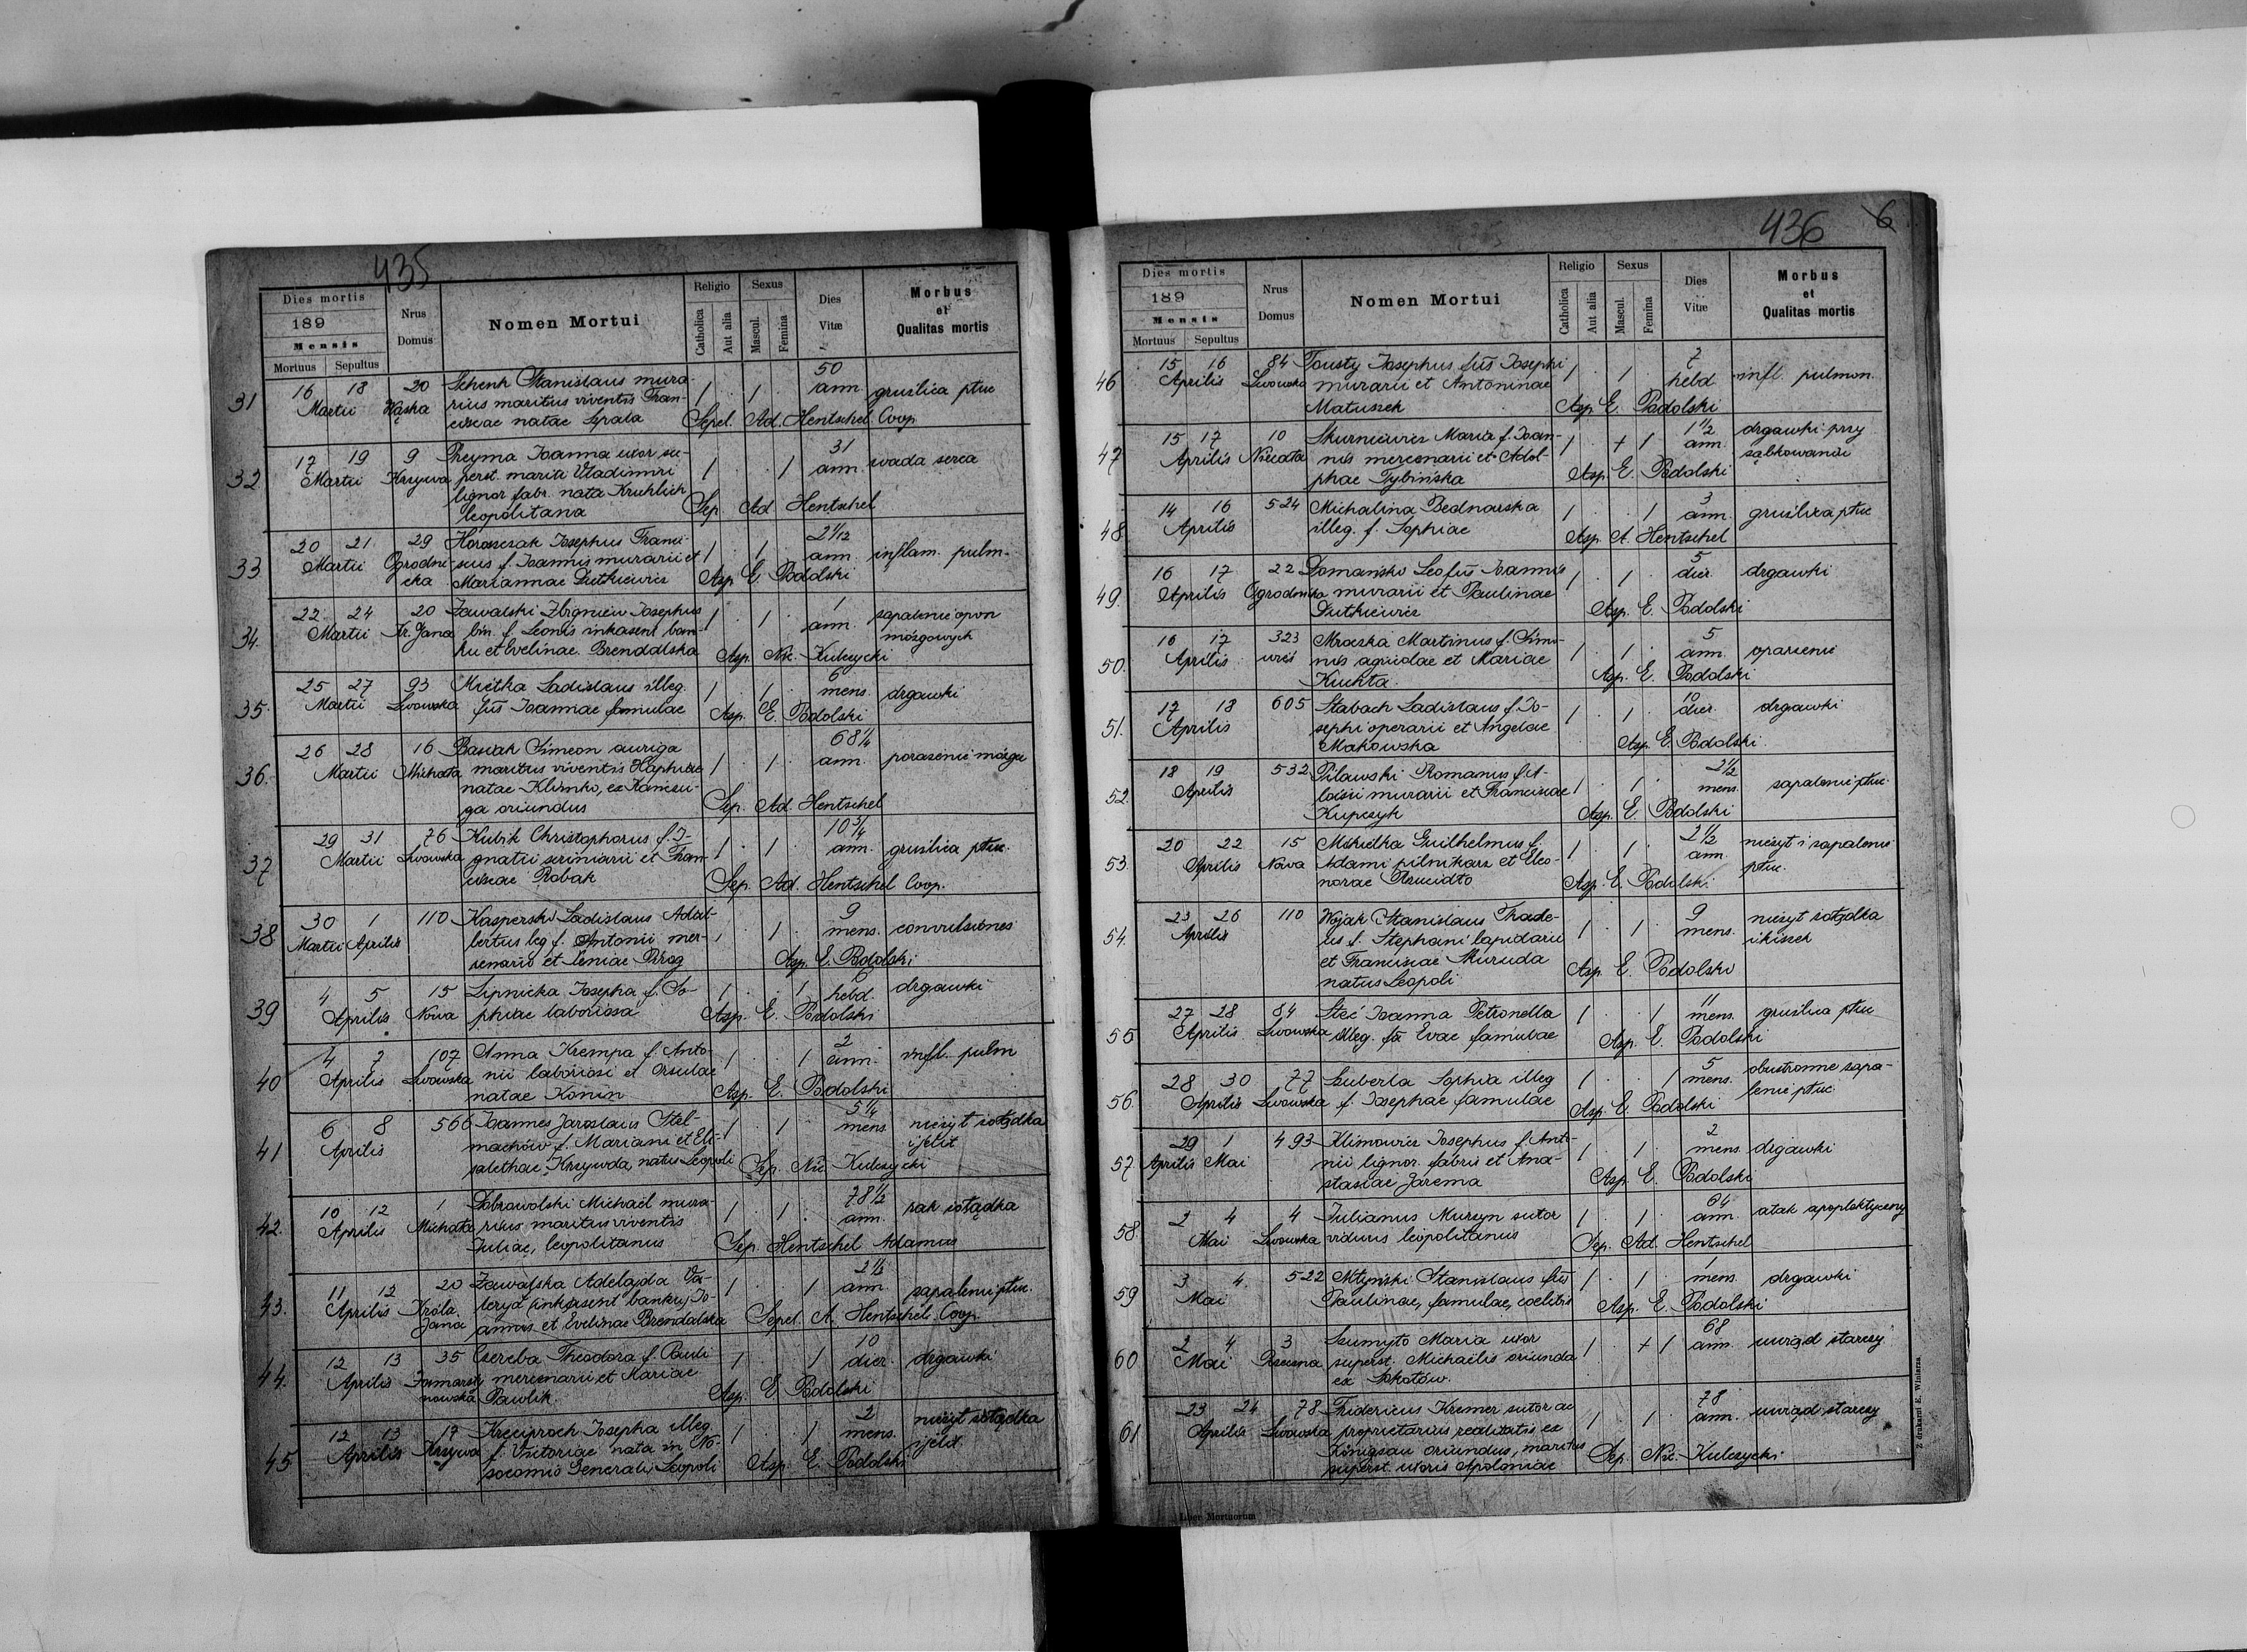 435
Dies mortis
189
Mensis
Mortuus Sepultus
Nrus Domus
Nomen Mortui
Religio
Catholica
Aut alia
Sexus
Mascul.
Femina
Dies Vitæ
Morbus
et
Qualitas mortis
31 16 18 20 Schenk Stanislaus mura- 1 . 1 . 50
Martii Wąska rius maritus viventis Fran- ann. gruźlica płuc
ciscae natae Spala Sepel. Ad. Hentschel Coop.
32 17 19 9 Rheyma Joanna uxor su- 1 . . 1 31
Martii Krzywa perst. mariti Vladimiri ann. wada serca
lignar. fabr. nata Kruhlich
leopolitana Sep. Ad Hentschel
33 20 21 29 Horoszczak Josephus Franci- 1 . 1 . 2 1/12
Martii Ogrodni- scus f. Joannis murarii et ann. inflam. pulm.
cka Mariannae Dutkiewicz Asp. E. Podolski
34. 22 24 20 Zawalski Zbigniew Josephus 1 . 1 . 1 zapalenie opon
Martii Kr. Jana bin. f. Leonis inkasent ban- ann. mózgowych
ku et Evelinae Brendalska Asp. Nic. Kulczycki
35. 25 27 93 Mietka Ladislaus illeg. 1 . 1 . 6
Martii Lwowska fűs Joannae famulae mens. drgawki
Asp. E. Podolski
36. 26 28 16 Basiak Simeon auriga 1 . 1 . 68 1/4
Martii Michała maritus viventis ann. porażenie mózgu
natae Klimko, ex Kamciu-
ga oriundus Sep. Ad Hentschel
37 29 31 76 Kubik Christophorus f. J- 1 . 1 . 10 3/4
Martii Lwowska gnatii scriniarii et Fran- ann. gruźlica płuc.
ciscae Robak Sep. Ad. Hentschel Coop.
38 30 1 110 Kasperski Ladislaus Adal- 1 . 1 . 9
Martii Aprilis bertus leg. f. Antonii mer- mens. convulsiones
senario et Xeniae Asp. E. Podolski
39 4 5 15 Lipnicka Josepha f. So- 1 . . 1 6 drgawki
Aprilis Nowa phiae laboriosa hebd.
Asp. E. Podolski
40 4 7 107 Anna Krempa f. Anto- 1 . . 1 2
Aprilis Lwowska nii laboriosi et Orsulae ann. infl. pulm
natae Konin Asp. E. Podolski
41 6 8 566 Joannes Jaroslaus Stel- 1 . 1 . 5 1/4
Aprilis machów f. Mariani et Eli- mens nieżyt żołądka
sabethae Krzywda, natus Leopoli i jelit
Sep. Nic Kulczycki
42. 10 12 1 Dobrowolski Michaël mura- 1 . 1 . 78 1/2
Aprilis Michała rius maritus viventis ann. rak żołądka
Juliae, leopolitanus Sep. Hentschel Adamus
43. 11 12 20 Zawalska Adelajda Va- 1 . . 1 2 1/2
Aprilis Króla leryd (inkasent banku) Jo- ann zapalenie płuc.
Jana annis et Evelinae Brendalska Sepel. A. Hentschel Coop.
44. 12 13 35 Czereba Theodora f. Pauli 1 . . 1 10
Aprilis Zamarsty- mercenarii et Mariae dier. drgawki
nowska Pawlik. Asp. E Podolski
45 12 13 17 Kreciproch Josepha illeg. 1 . . 1 2 nieżyt żołądka
Aprilis Krzywa f. Victoriae nata in No- mens. i jelit
socomio Generali, Leopoli Asp. E. Podolski
436 6
Dies mortis
189
Mensis
Mortuus Sepultus
Nrus Domus
Nomen Mortui
Religio
Catholica
Aut alia
Sexus
Mascul.
Femina
Dies Vitæ
Morbus
et
Qualitas mortis
46 15 16 84 Tousty Josephus fűs Josephi 1 . 1 . 7
Aprilis Lwowska murarii et Antoninae hebd infl. pulmon.
Matuszek Asp. E. Podolski
47 15 17 10 Skurniewicz Maria f. Joan- 1 . + 1 1 1/2 drgawki przy
Aprilis Niecała nis mercenarii et Adol- ann. ząbkowaniu
phae Tybińska Asp. E. Podolski
48 14 16 524 Michalina Bednarska 1 . . 1 3
Aprilis illeg. f. Sophiae ann. gruźlica płuc
Asp. A. Hentschel
49. 16 17 22 Domańsko Leo fűs Joannis 1 . 1 . 5
Aprilis Ogrodnicka murarii et Paulinae dier. drgawki
Dutkiewicz Asp. E. Podolski
50. 16 17 323 Mroczka Martinus f. Simo- 1 . 1 . 5
Aprilis wieś nis agricolae et Mariae ann. oparzenie
Kuchta. Asp. E. Podolski
51. 17 18 605 Stabach Ladislaus f. Jo- 1 . 1 . 10
Aprilis sephi operarii et Angelae dier. drgawki
Makowska Asp. E. Podolski.
52. 18 19 532 Pilawski Romanus f. A- 1 . 1 . 2 1/2
Aprilis loisii murarii et Franciscae mens. zapalenie płuc.
Kupczyk Asp. E. Podolski
53. 20 22 15 Mikielka Guilhelmus f. 1 . 1 . 2 1/2 nieżyt i zapalenie
Aprilis Nowa Adami pilnikarz et Eleo- ann płuc.
norae Rzucidło Asp. E. Podolski
54. 23 26 110 Wojak Stanislaus Thade- 1 . 1 . 9 nieżyt żołądka
Aprilis us f. Stephani lapidarii mens. i kiszek
et Franciscae Muruda
natus Leopoli Asp. E. Podolski
55 27 28 84 Steć Joanna Petronella 1 . . 1 11
Aprilis Lwowska illeg. fa Evae famulae mens. gruźlica płuc
Asp. E. Podolski
56. 28 30 77 Szuberla Sophia illeg 1 . . 1 5 obustronne zapa-
Aprilis Lwowska f. Josephae famulae mens. lenie płuc.
Asp. E. Podolski
57. 29 1 493 Klimowicz Josephus f. Anto- 1 . 1 . 2
Aprilis Mai nii lignar. fabris et Ana- mens. drgawki
stasiae Jarema Asp. E. Podolski
58. 2 4 4 Julianus Murzyn sutor 1 . 1 . 64
Mai Lwowska viduus leopolitanus ann. atak apoplektyczny
Sep. Ad. Hentschel
59 3 4. 522 Stanislaus fűs 1 . 1 . 1
Mai Paulinae, famulae, coelitis mens. drgawki
Asp. E. Podolski
60 2 4 3 Szumyło Maria uxor 1 . + 1 68
Mai Rzeczna superst. Michaëlis oriunda ann. uwiąd starczy
ex Sokołów.
61 23 24 78 Fridericus Kremer sutor ac 1 . 1 . 78
Aprilis Lwowska proprietarius realitatis ex ann. uwiąd starczy
Königsau oriundus, maritus
superst. uxoris Apoloniae Sep. Nic. Kulczycki
Liber Mortuorum
Z drukarni E. Winiarza.